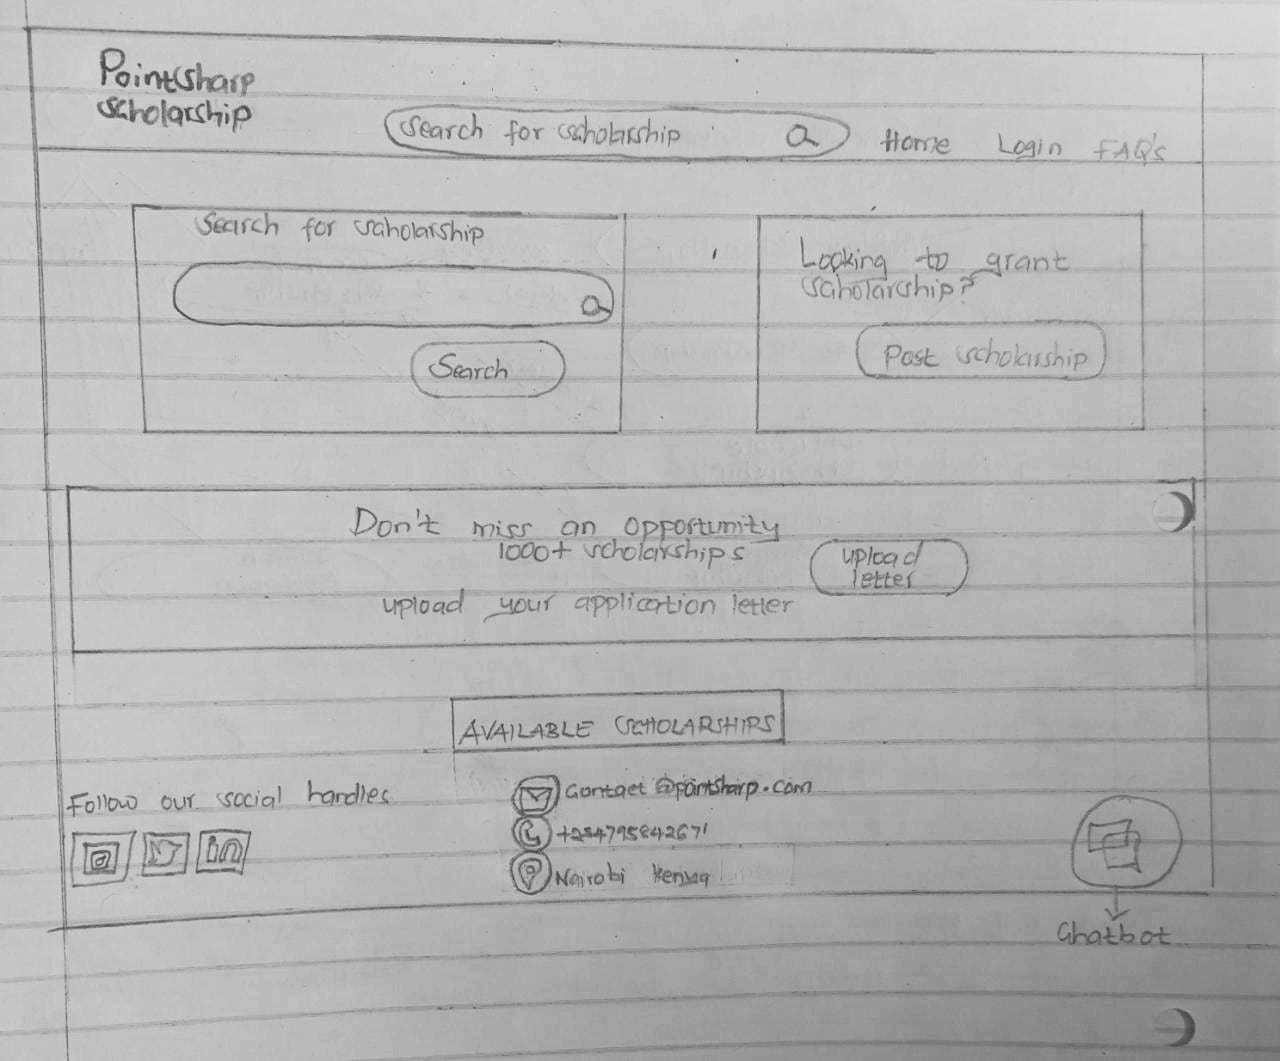 Pointsharp
scholarship
Search for scholarship
Home Login FAQ's
Search for scholarship
Search
Looking to grant
scholarship?
Post scholarship
Don't miss an opportunity
1000+ scholarships
upload your application letter
upload
letter
AVAILABLE SCHOLARSHIPS
Follow our social handles
in
Contact@pointsharp.com
+254795842671
Nairobi Kenya
Chatbot